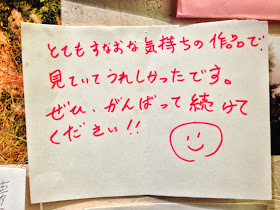 とてもすなおな気持ちの作品で、
見ていてうれしかったです。
ぜひ、がんばって続けて
ください!!